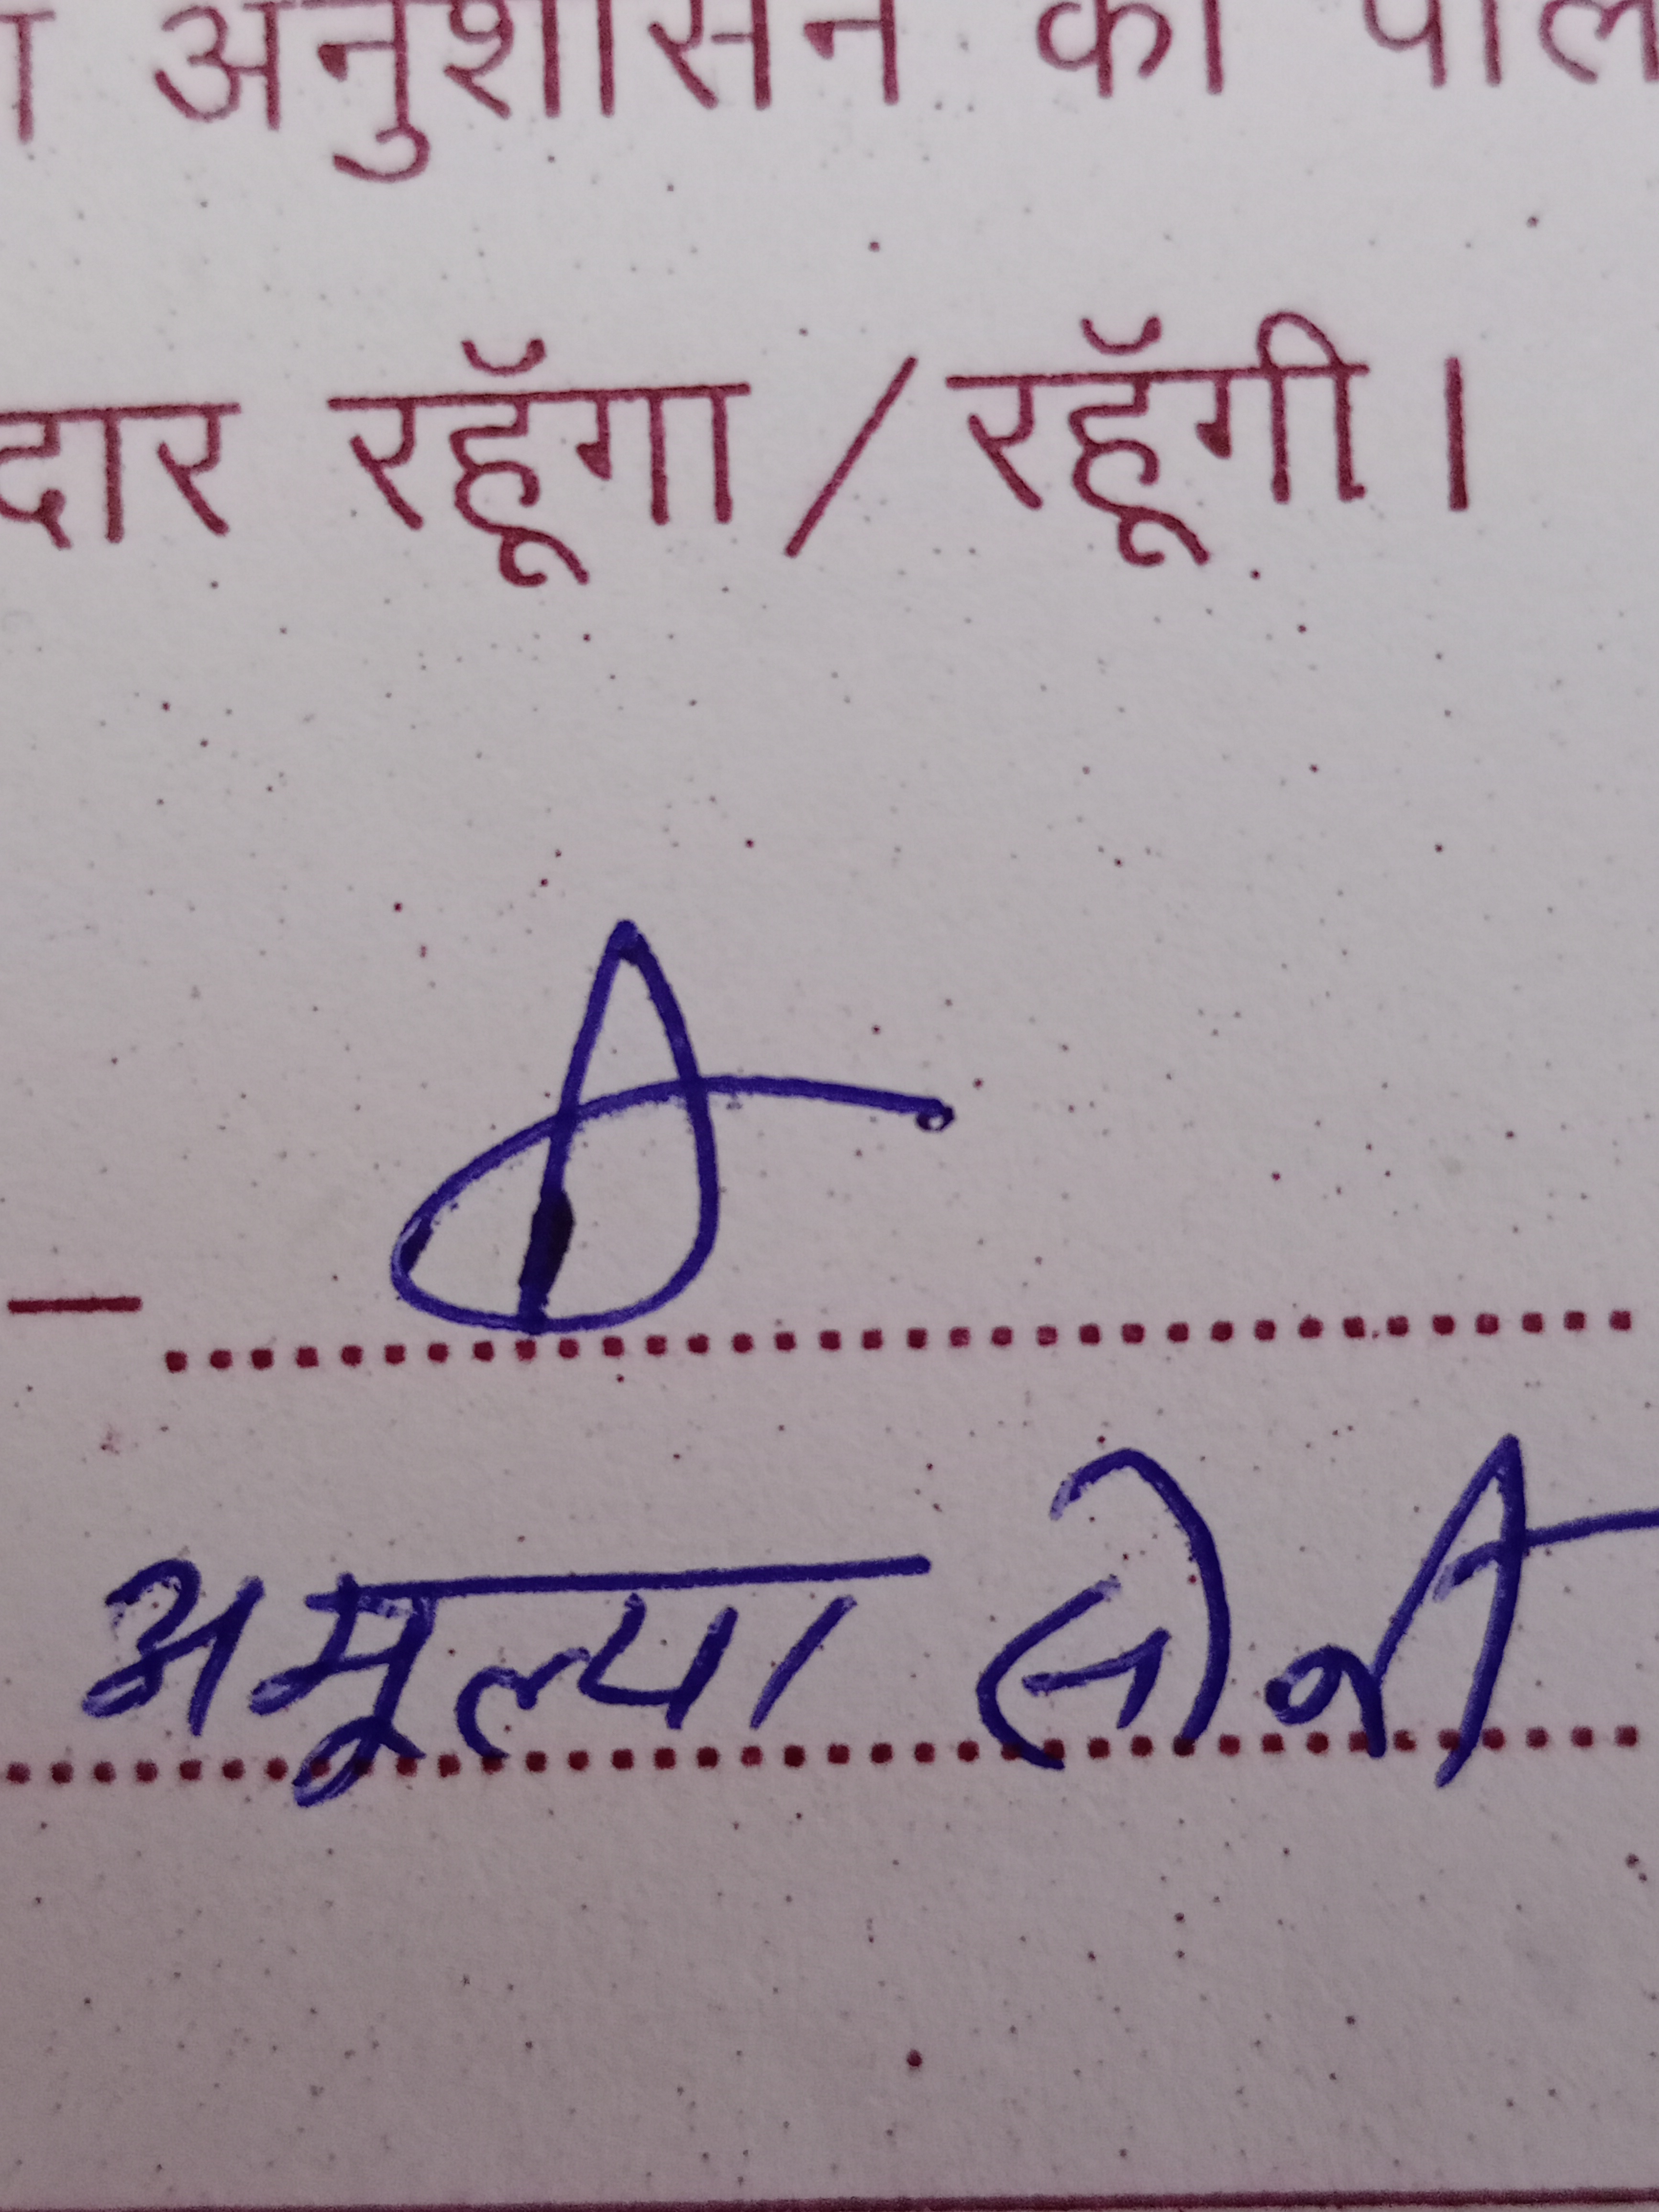 अनुशासन का पाल
दार रहूँगा / रहूँगी ।
अमूल्या सोनी